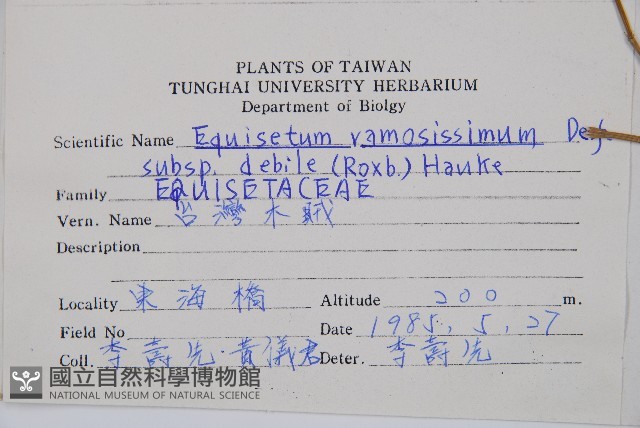 PLANTS OF TAIWAN
TUNGHAI UNIVERSITY HERBARIUM
Department of Biolgy
Scientific Name Equisetum ramosissimum Desf.
subsp. debile (Roxb.) Hauke
Family EQUISETACEAE
Vern. Name 台灣木賊
Description
Locality 東海橋 Altitude 200 m.
Field No Date 1985, 5, 27
Coll. 李壽先 黃儀君 Deter. 李壽先
國立自然科學博物館
NATIONAL MUSEUM OF NATURAL SCIENCE